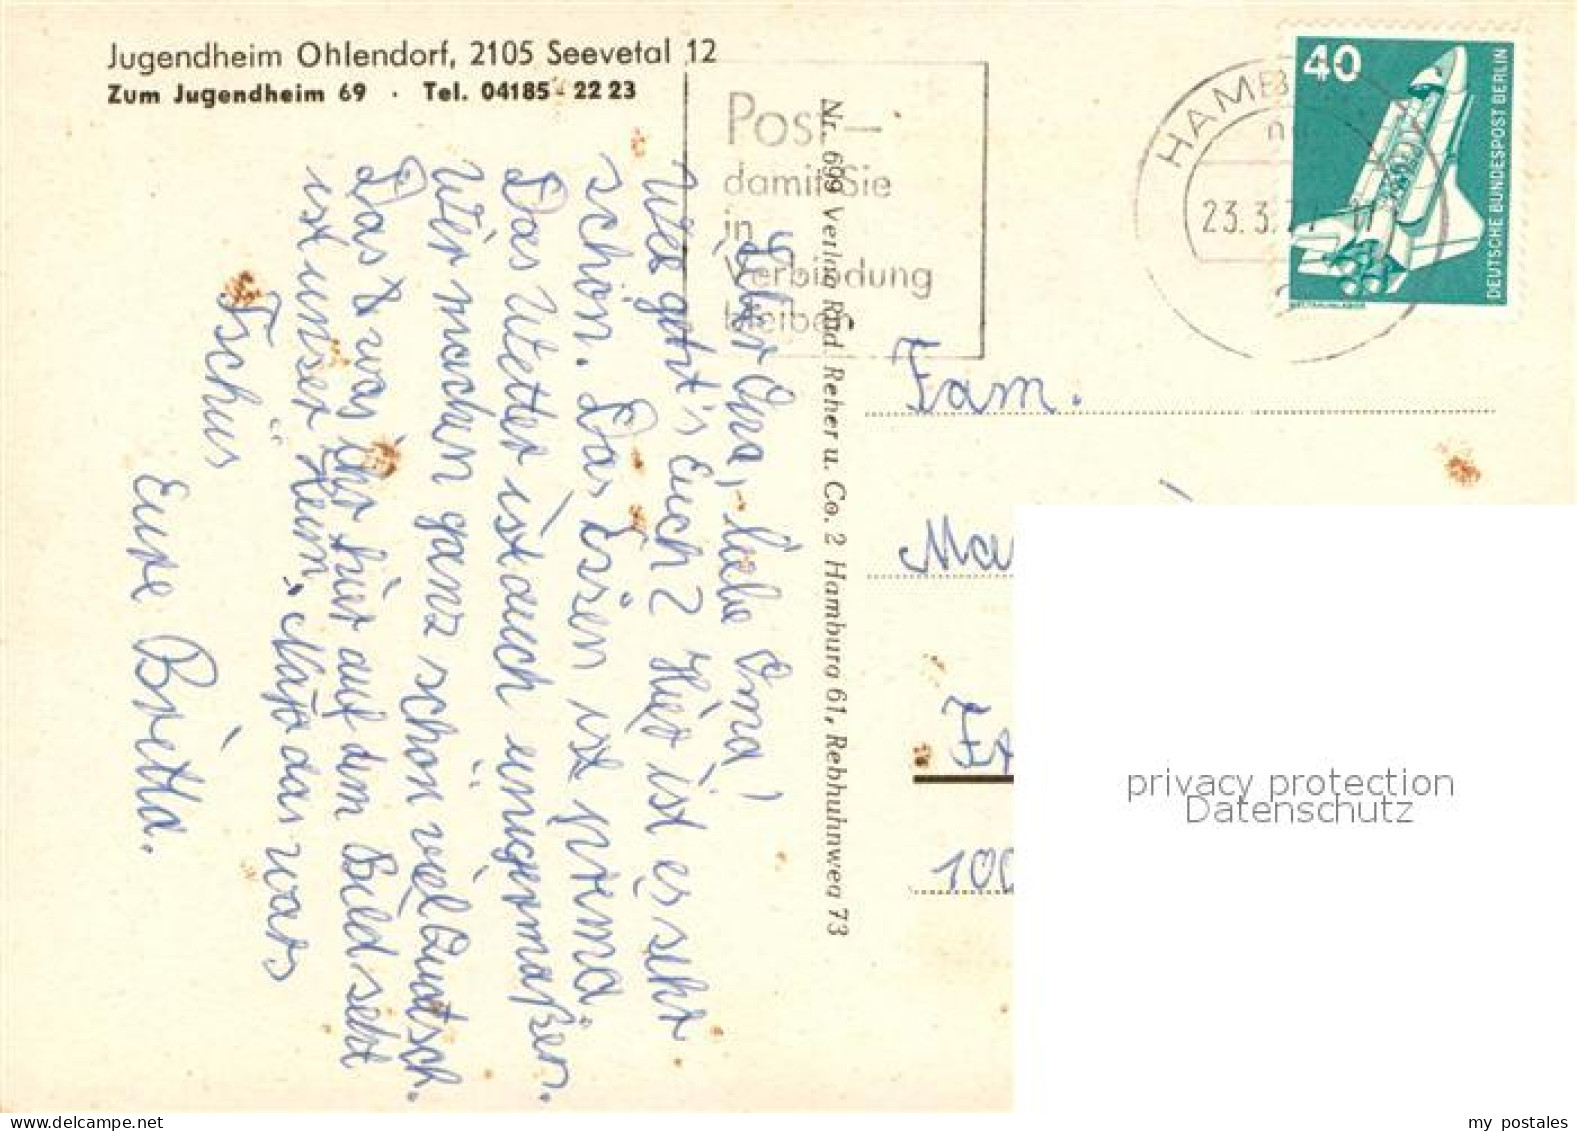 Jugendheim Ohlendorf, 2105 Seevetal 12
Zum Jugendheim 69 · Tel. 04185 - 22 23
Post –
damit Sie
in
Verbindung
bleiben
HAMB
23.3.7
40
DEUTSCHE BUNDESPOST BERLIN
Nr. 699 Verlag Rud. Reher u. Co. 2 Hamburg 61, Rebhuhnweg 73
Lieber Opa, liebe Oma!
Wie geht's Euch? Hier ist es sehr
schön. Das Essen ist prima.
Das Wetter ist auch einigermaßen.
Wir machen ganz schön viel Quatsch.
Das was ihr hier auf dem Bild seht
ist unser Heim. Naja das wars
Tschüs
Eure Britta.
Fam.
Ma
100
privacy protection
Datenschutz
my postales